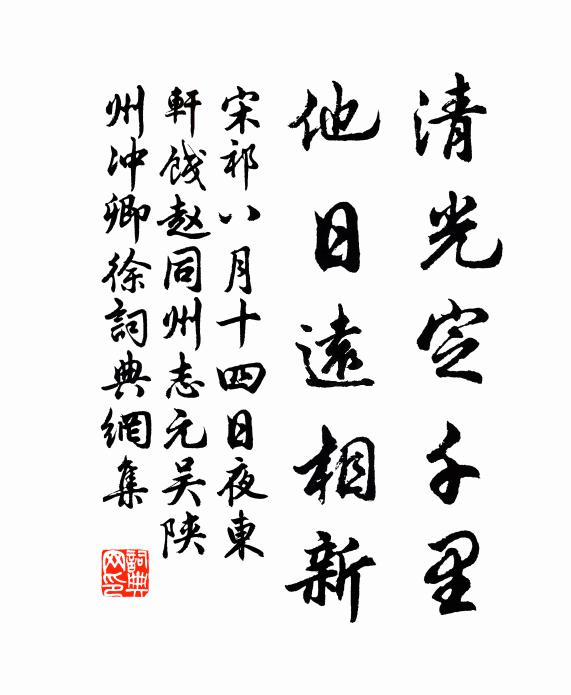 清光定千里
他日遠相新
宋祁八月十四日夜東
軒餞赵同州志元吴陕
州冲卿徐詞典網集
詞典网印